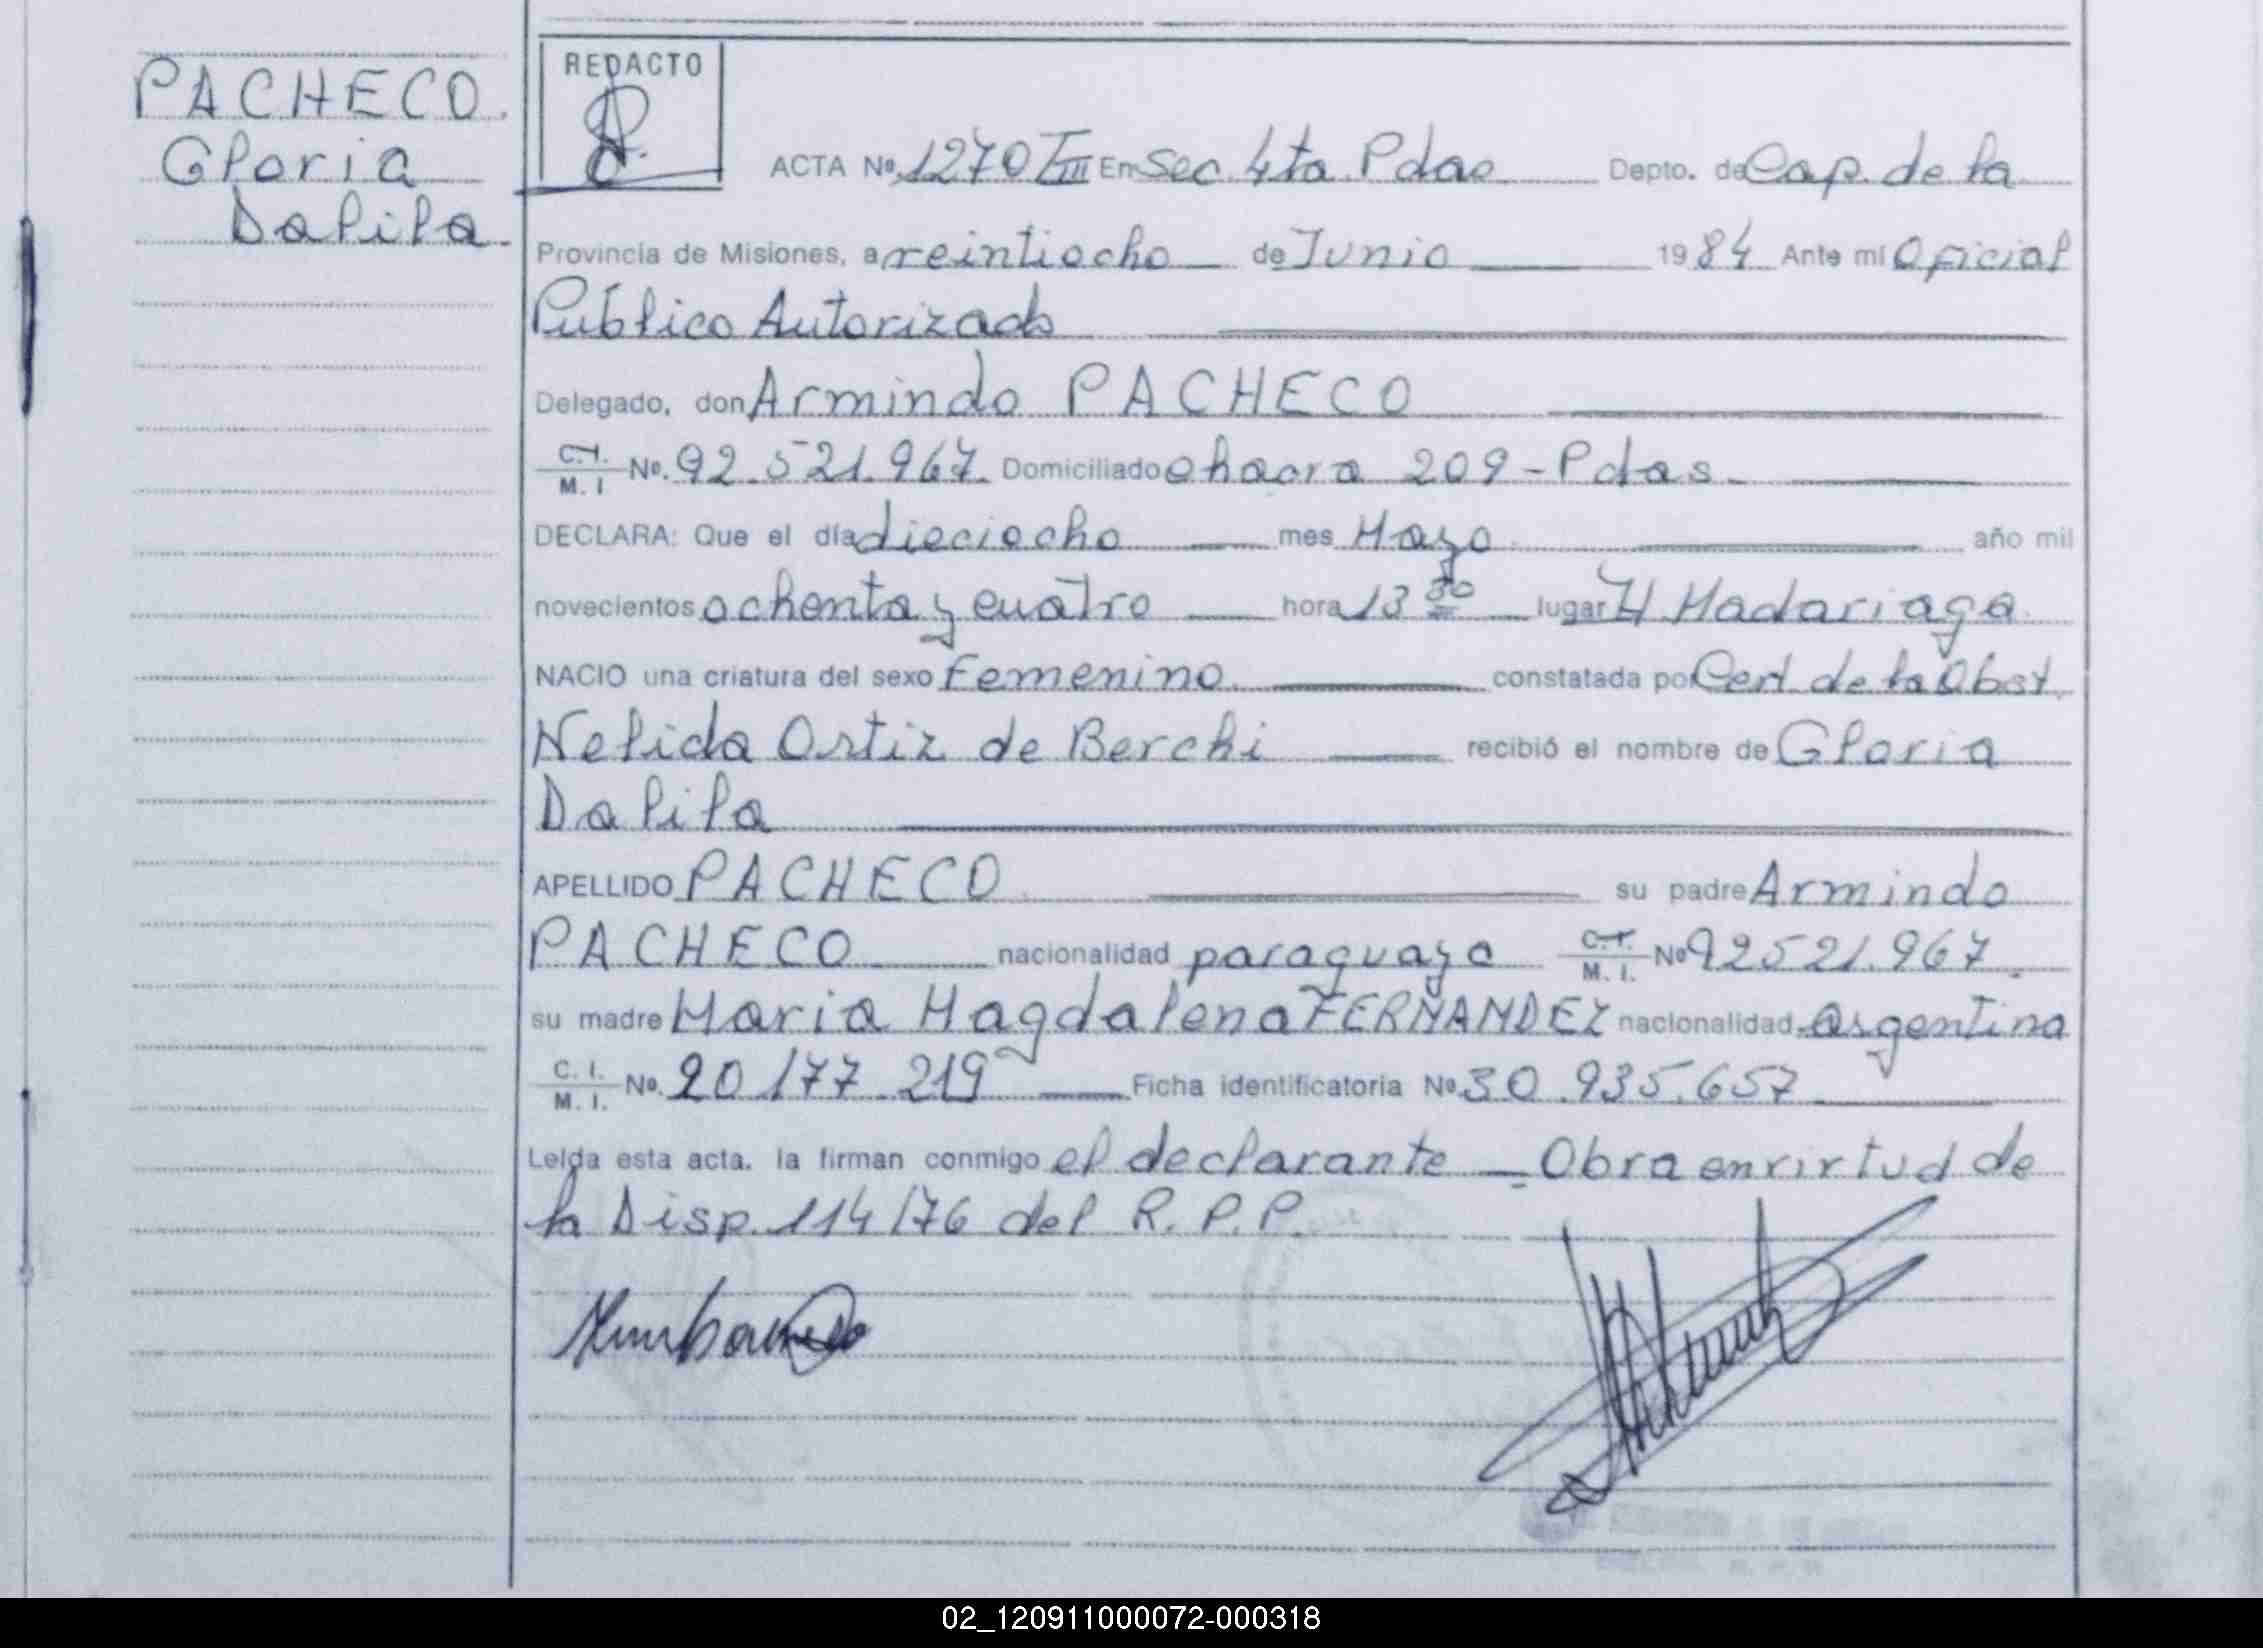 PACHECO.
Gloria
Dalila.
REDACTO
ACTA Nº. 1270 TIII En Sec. 4ta. Pdas Depto. de Cap. de la
Provincia de Misiones, a veintiocho de Junio 1984 Ante mí Oficial
Público Autorizado
Delegado, don Armindo PACHECO
C.I. M. I Nº. 92.521.967. Domiciliado chacra 209 - Pdas.
DECLARA: Que el día dieciocho mes Mayo año mil
novecientos ochenta y cuatro hora 13 30 lugar H. Madariaga
NACIO una criatura del sexo Femenino constatada por Cert. de la Obst.
Nelida Ortiz de Berchi recibió el nombre de Gloria
Dalila
APELLIDO PACHECO su padre Armindo
PACHECO nacionalidad paraguaya C.I. M. I. Nº 92521.967.
su madre Maria Magdalena FERNANDEZ nacionalidad argentina
C. I. M. I. Nº. 20 177 219 Ficha identificatoria Nº 30.935.657
Leída esta acta. la firman conmigo el declarante - Obra en virtud de
la Disp. 114/76 del R. P. P.
02_120911000072-000318